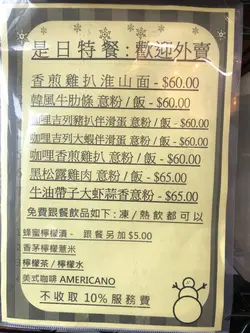 是日特餐:歡迎外賣
香煎雞扒淮山面 - $60.00
韓風牛肋條 意粉 / 飯 - $60.00
咖哩吉列豬扒伴滑蛋 意粉 / 飯 - $60.00
咖哩吉列大蝦伴滑蛋 意粉 / 飯 - $60.00
咖哩香煎雞扒 意粉 / 飯 - $60.00
黑松露雞肉 意粉 / 飯 - $65.00
牛油帶子大虾蒜香意粉 - $65.00
免費跟餐飲品如下 : 凍 / 熱飲都可以
蜂蜜檸檬漬 - 跟餐另加 $5.00
香茅檸檬薏米
檸檬茶 / 檸檬水
美式咖啡 AMERICANO
不收取 10% 服務費